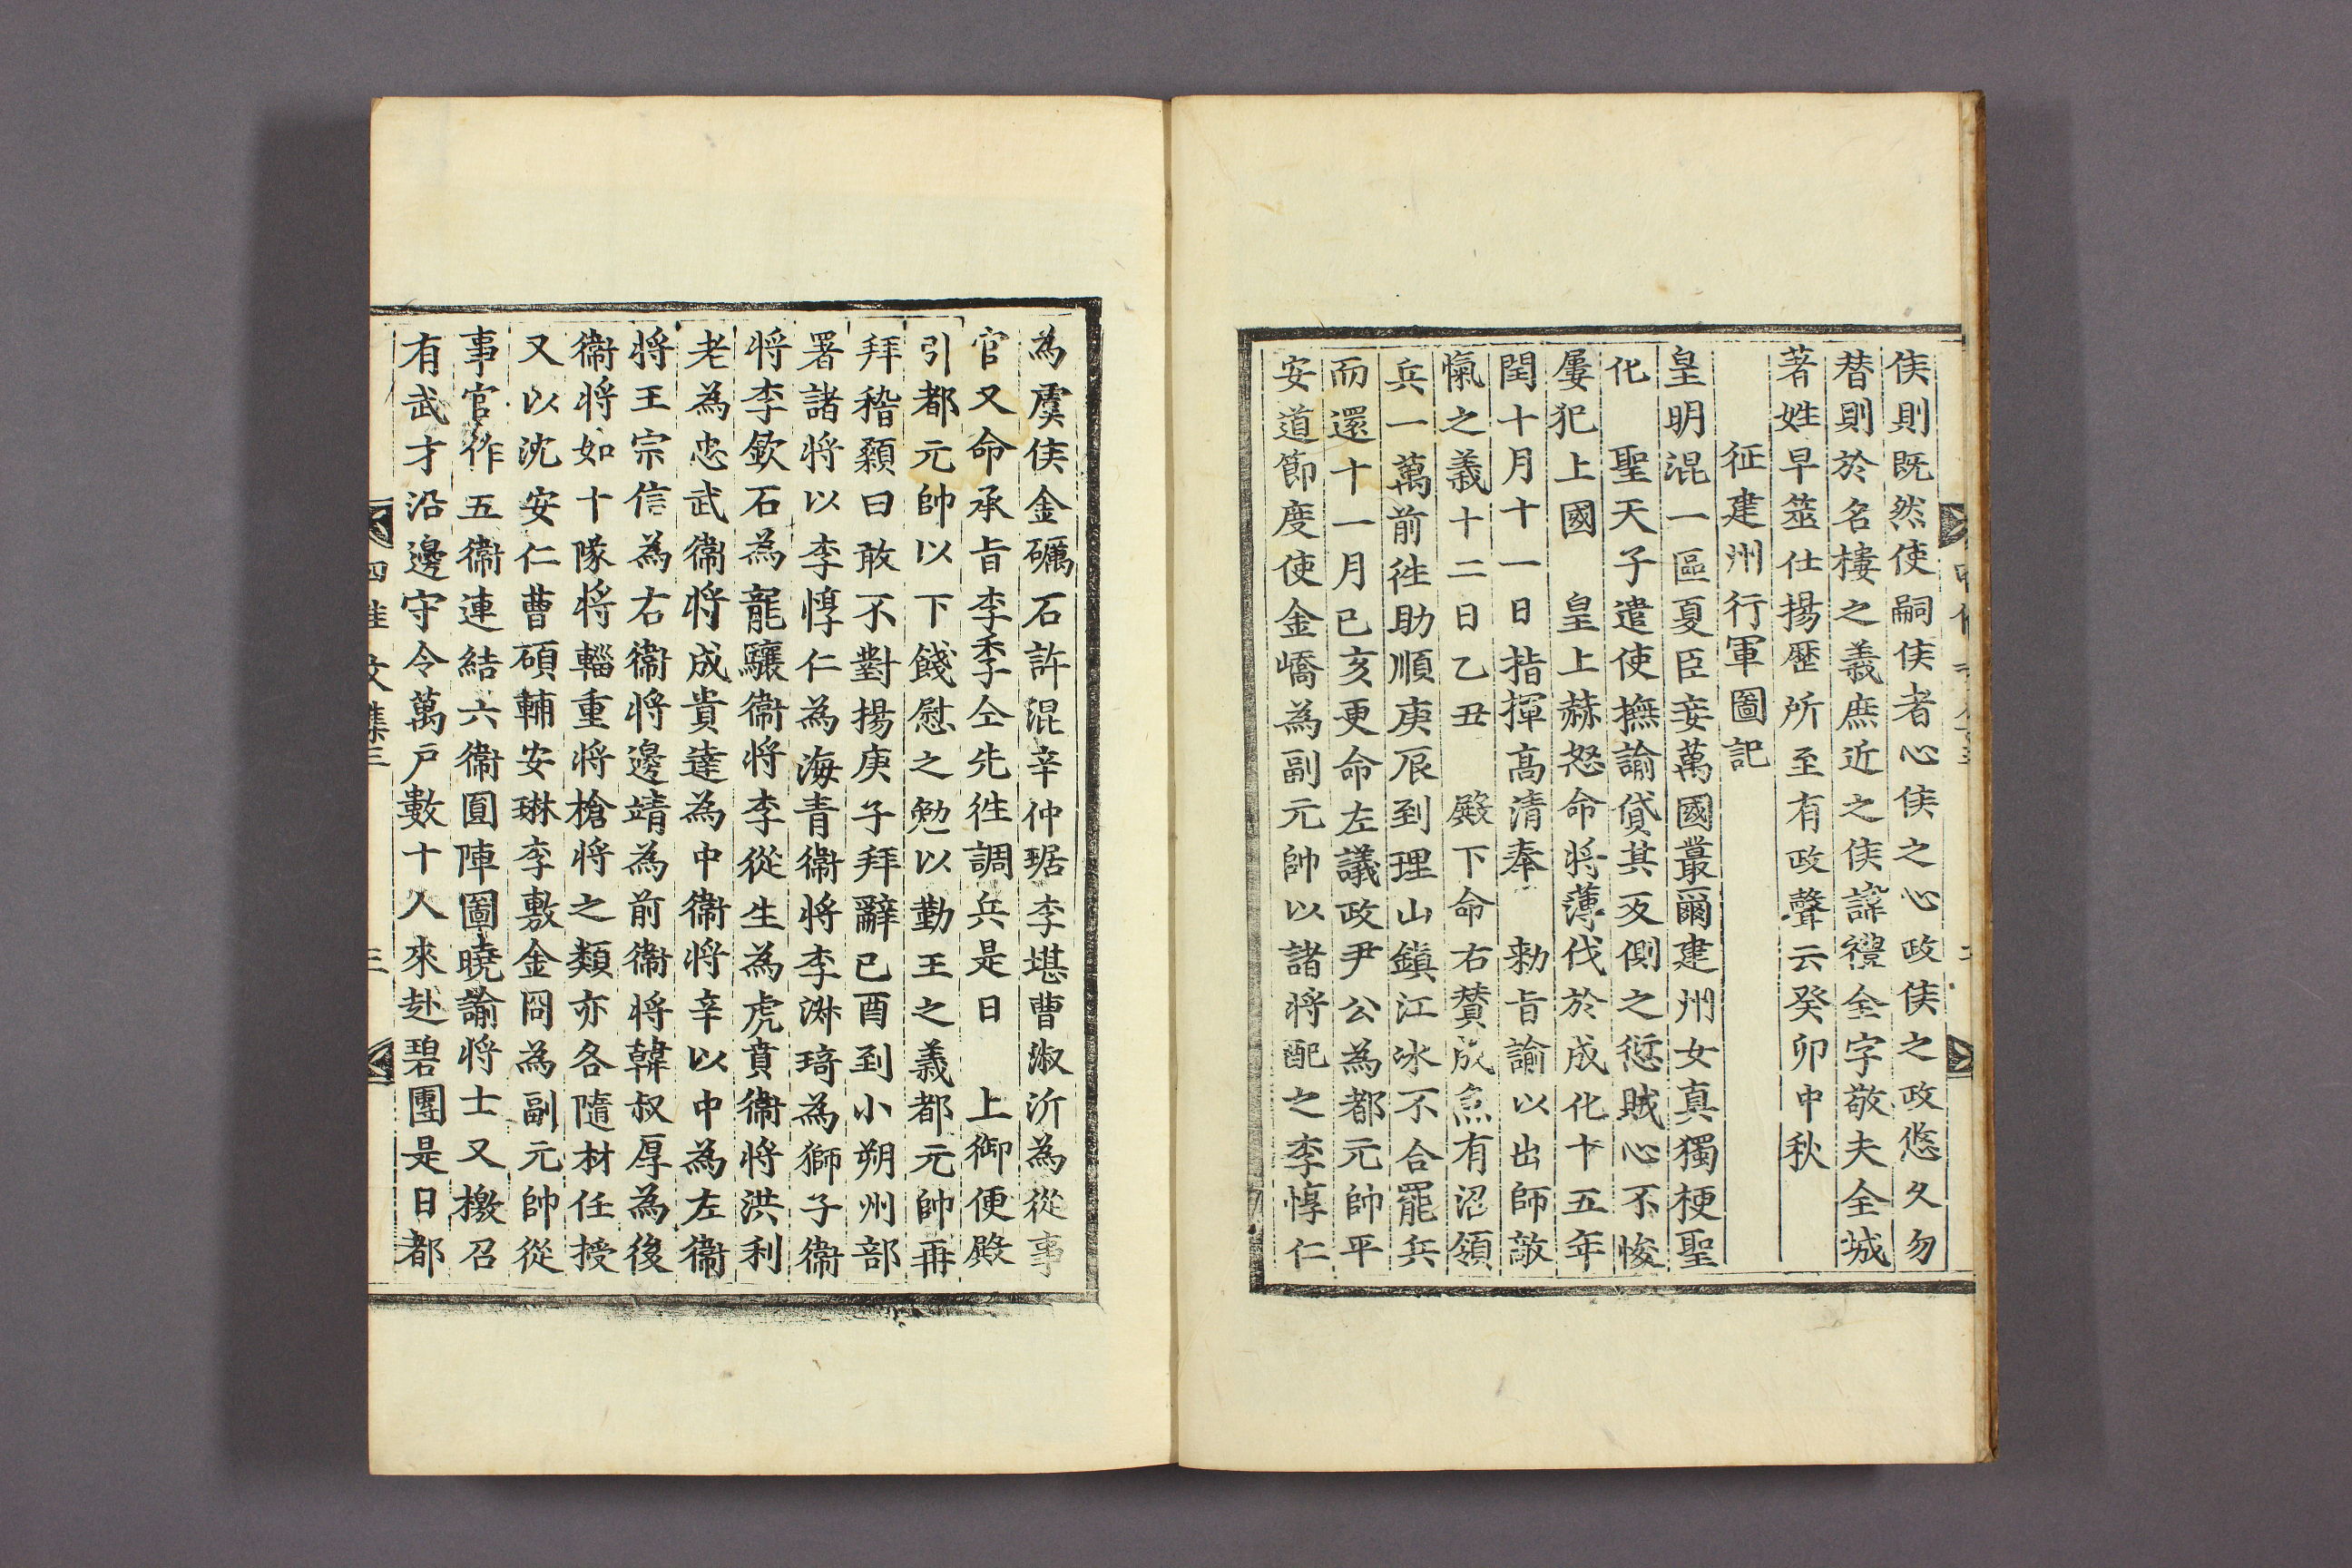 侯則既然使嗣侯者心侯之心政侯之政悠久勿
替則於名樓之義庶近之侯諱禮全字敬夫全城
著姓早筮仕揚歷所至有政聲云癸卯中秋
征建州行軍圖記
皇明混一區夏臣妾萬國蕞爾建州女真獨梗聖
化 聖天子遣使撫諭貸其反側之愆賊心不悛
屢犯上國 皇上赫怒命將薄伐於成化十五年
閏十月十一日指揮高清奉 勑旨諭以出師敵
愾之義十二日乙丑 殿下命右贊成魚有沼領
兵一萬前徃助順庚辰到理山鎮江冰不合罷兵
而還十一月己亥更命左議政尹公為都元帥平
安道節度使金嶠為副元帥以諸將配之李惇仁
為虞侯金礪石許混辛仲琚李堪曹淑沂為從事
官又命承旨李季仝先徃調兵是日 上御便殿
引都元帥以下餞慰之勉以勤王之義都元帥再
拜稽顙曰敢不對揚庚子拜辭己酉到小朔州部
署諸將以李惇仁為海青衛將李淋琦為獅子衛
將李欽石為龍驤衛將李從生為虎賁衛將洪利
老為忠武衛將成貴達為中衛將辛以中為左衛
將王宗信為右衛將邊靖為前衛將韓叔厚為後
衛將如十隊將輜重將槍將之類亦各隨材任授
又以沈安仁曹碩輔安琳李敷金冏為副元帥從
事官作五衛連結六衛圓陣圖曉諭將士又檄召
有武才沿邊守令萬戶數十人來赴碧團是日都
四佳文集三 三